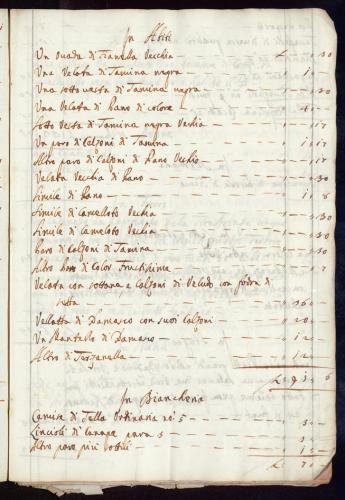 In Abiti
Un di Flanella Vecchia — £ " " 30
Una Velata di Tamina negra — " 10 "
Una sotto vesta di Tamina negra — " " 30
Una Velata di Pano di colore — " 40 "
Sotto Vesta di Tamina negra Vechia — " " 17
Un paro di Calzoni di Tamina — 1 " 17
Altro paro di Calzoni di Pano Vechio — " " 17
Velata Vecchia di Pano — " " 30
Simile di Pano — 8
Simile di Camelloto Vechia — " " 30
Simile di Cameloto Vechia — " " 30
Paro di Calzoni di Tamina — " " 30
Altro Paro di Color — " " 17
Velata con sottana e Calzoni di Veludo con fodra di
— " 360 "
Vellatta di Damasco con suoi Calzoni — " 20 "
Un Mantello di Damasco — " 120 "
Altro di Terzanella — " 120 "
£ 6
In Biancheria
Camise di Tella Ordinaria no: 5 —
Lincioli di Canapa para 3 — " 30 "
Altro paro più sottili —
£ 70 "